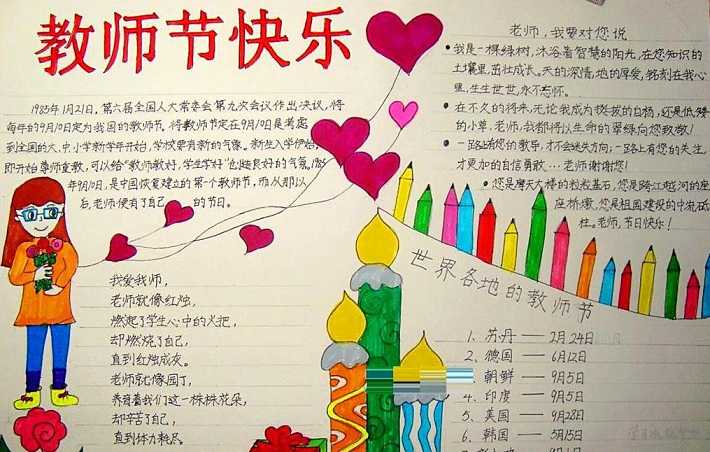 教师节快乐
1985年1月21日,第六届全国人大常委会第九次会议作出决议,将
每年的9月10日定为我国的教师节。将教师节定在9月10日是考虑
到全国的大、中小学新学年开始,学校要有新的气象。新生入学伊始,
即开始尊师重教,可以给"教师教好,学生学好"创造良好的气氛。1985
年9月10日,是中国恢复建立的第一个教师节,而从那以
后,老师便有了自己的节日。
我爱我师,
老师就像红烛,
燃起了学生心中的火把,
却燃烧了自己,
直到红烛成灰。
老师就像园丁,
养育着我们这一株株花朵,
却辛苦了自己,
直到体力耗尽。
老师,我要对您说
我是一棵绿树,沐浴着智慧的阳光,在您知识的
土壤里,茁壮成长。天的深情,地的厚爱,铭刻在我心
里,生生世世,永不忘怀。
在不久的将来,无论我成为挺拔的白杨,还是低矮
的小草,老师,我都将以生命的翠绿向您致敬!
一路上有您的教导,才不会迷失方向;一路上有您的关注,
才更加的自信勇敢……老师谢谢您!
您是摩天大楼的粒粒基石,您是跨江越河的座
座桥墩,您是祖国建设的中流砥
柱。老师,节日快乐!
世界各地的教师节
1、苏丹——2月24日
2、德国——6月12日
朝鲜——9月5日
4、印度——9月5日
5、美国——9月28日
6、韩国——5月15日